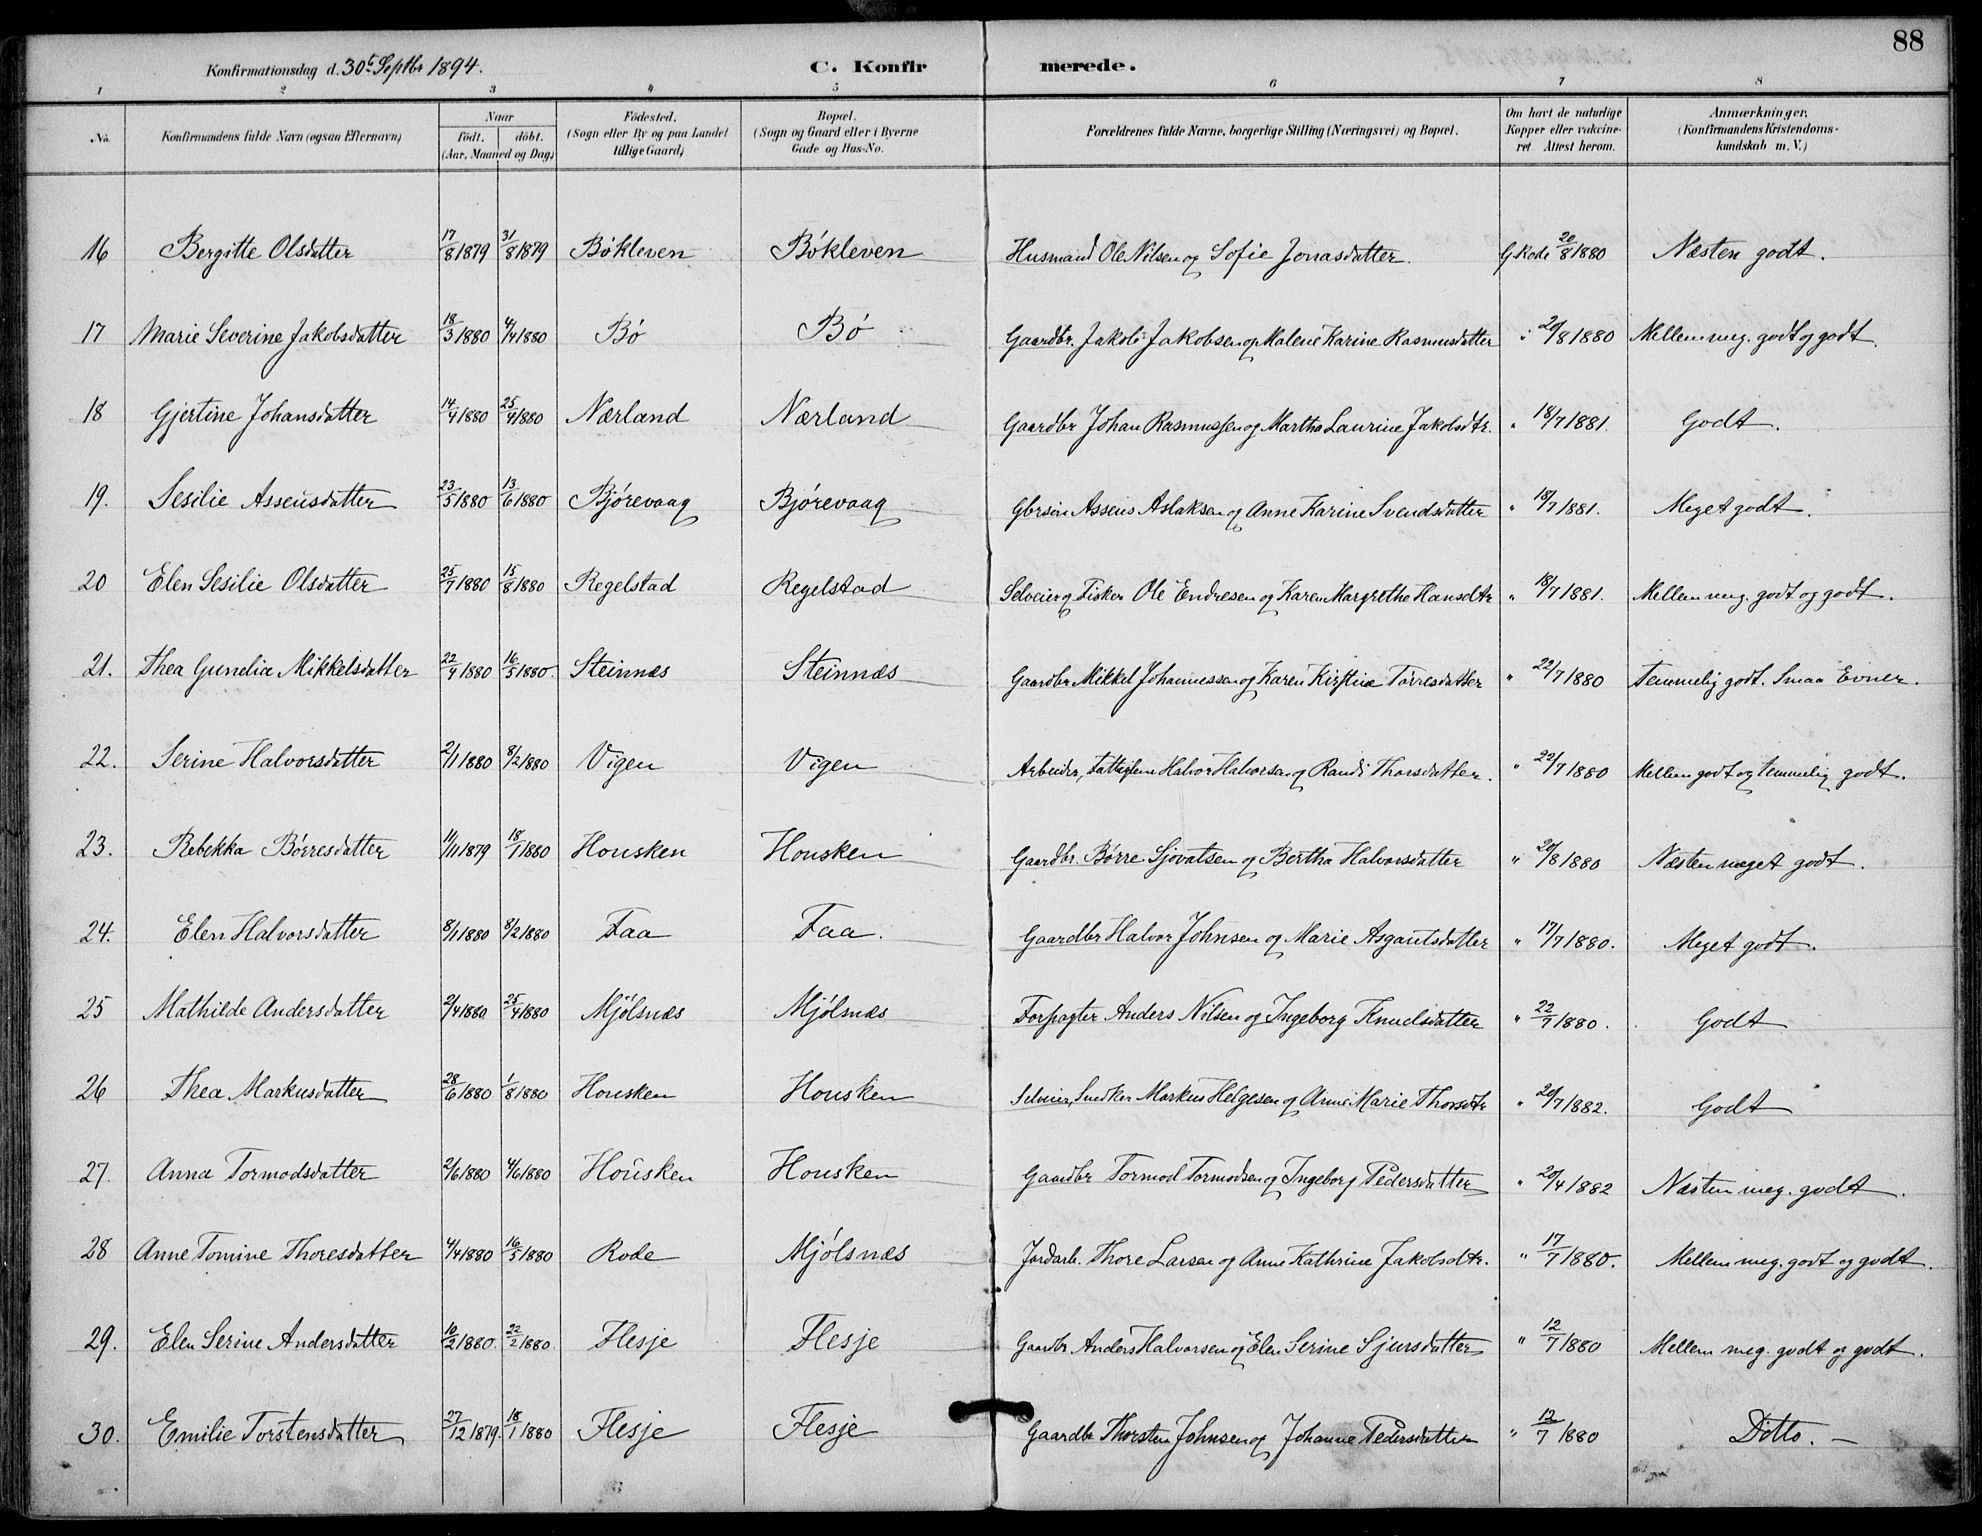 88
Konfirmationsdag d. 30t Septbr 1894. C. Konfirmerede.
1 2 3 4 5 6 7 8
No. Konfirmandens fulde Navn (ogsaa Efternavn) Naar födt. döbt. (Aar, Maaned og Dag) Födested. (Sogn eller By og paa Landet tillige Gaard) Bopæl. (Sogn og Gaard eller i Byerne Gade og Hus-No. Forældrenes fulde Navne, borgerlige Stilling (Næringsvei) og Bopæl. Om havt de naturlige Kopper eller vakcineret Attest herom. Anmærkninger. (Konfirmandens Kristendomskundskab m. V.)
16 Bergitte Olsdatter 17/8 1879 31/8 1879 Bókleven Bókleven Husmand Ole Nilsen og Sofie Jonasdatter. G. Rode 20/8 1880 Næsten godt.
17 Marie Severine Jakobsdatter 18/3 1880 4/4 1880 Bó Bó Gaardbr. Jakob Jakobsen og Malene Karine Rasmusdatter " 20/8 1880 Mellem meg. godt og godt.
18 Gjertine Johansdatter 14/4 1880 25/4 1880 Nærland Nærland Gaardbr Johan Rasmussen og Martha Laurine Jakobsdtr. " 18/7 1881. Godt.
19. Sesilie Assensdatter 23/5 1880 13/6 1880 Bjórevaag Bjórevaag Gbrsøn Assens Aslaksen og Anne Karine Svendsdatter " 18/7 1881. Meget godt.
20 Elen Sesilie Olsdatter 25/7 1880 15/8 1880 Regelstad Regelstad Selveier og Fisker Ole Endresen og Karen Margrethe Hansdtr " 18/7 1881. Mellem meg. godt og godt.
21. Thea Gunelia Mikkelsdatter 22/4 1880 16/5 1880. Steinnæs Steinnæs Gaardbr Mikkel Johannessen og Karen Kirstine Tórresdatter " 22/7 1880 temmelig godt. Smaa Evner.
22. Serine Halvorsdatter 2/1 1880 8/2 1880 Vigen Vigen Arbeider, Halvor Halvorsen og Randi Thorsdatter. " 22/7 1880 Mellem godt og temmelig godt.
23. Rebekka Bórresdatter 11/11 1879 18/1 1880 Housken Housken Gaardbr. Børre Sjovatsen og Bertha Halvorsdatter " 20/8 1880 Næsten meget godt.
24. Elen Halvorsdatter 8/1 1880 8/2 1880 Faa Faa. Gaardbr Halvor Johnsen og Marie Asgautsdatter " 17/7 1880. Meget godt.
25 Mathilde Andersdatter 2/4 1880 25/4 1880 Mjólsnæs Mjólsnæs Forpagter Anders Nilsen og Ingeborg Knudsdatter " 22/7 1880. Godt
26 Thea Markusdatter 28/6 1880 1/8 1880 Housken Housken Selveier, Snedker Markus Helgesen og Anne Marie Thorsdtr " 20/7 1882. Godt
27. Anna Tormodsdatter 2/6 1880 4/6 1880 Housken Housken Gaardbr Tormod Tormodsen og Ingeborg Pedersdatter " 20/4 1882 Næsten meg. godt.
28 Anne Tomine Thoresdatter 4/4 1880 16/5 1880 Rode Mjólsnæs Jordarb. Thore Larsen og Anne Kathrine Jakobsdtr. " 17/7 1880. Mellem meg. godt og godt.
29. Elen Serine Andersdatter 10/2 1880. 22/2 1880. Flesje Flesje Gaardbr Anders Halvorsen og Elen Serine Sjursdatter " 12/7 1880 Mellem meg. godt og godt.
30. Emilie Torstensdatter 27/12 1879. 18/1 1880 Flesje Flesje Gaardbr Thorsten Johnsen og Johanne Pedersdatter " 12/7 1880 Ditto. —